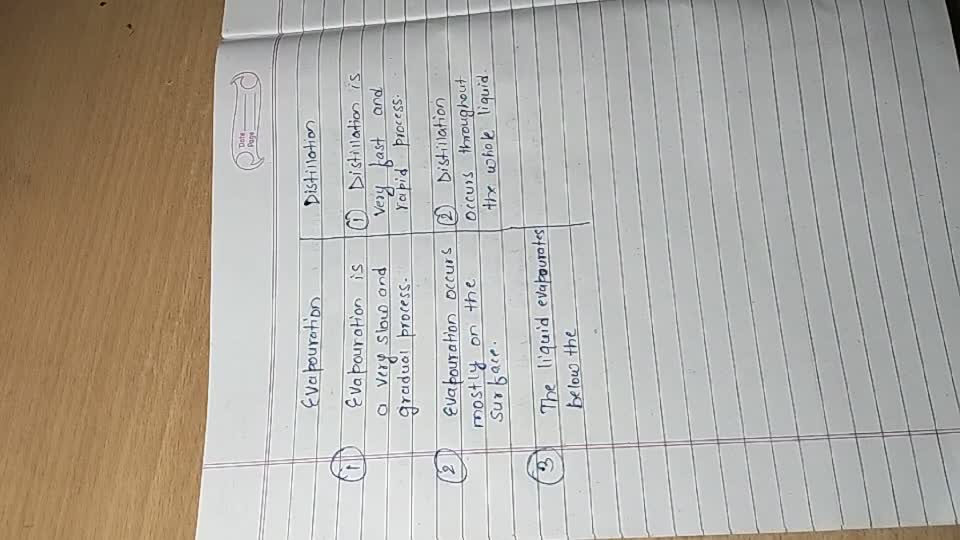 Date
Page
Evapouration
Distillation
① Evapouration is
a very slow and
gradual process.
① Distillation is
very fast and
rapid process.
② Evapouration occurs
mostly on the
surface.
② Distillation
occurs throughout
the whole liquid.
③ The liquid evapourates
below the